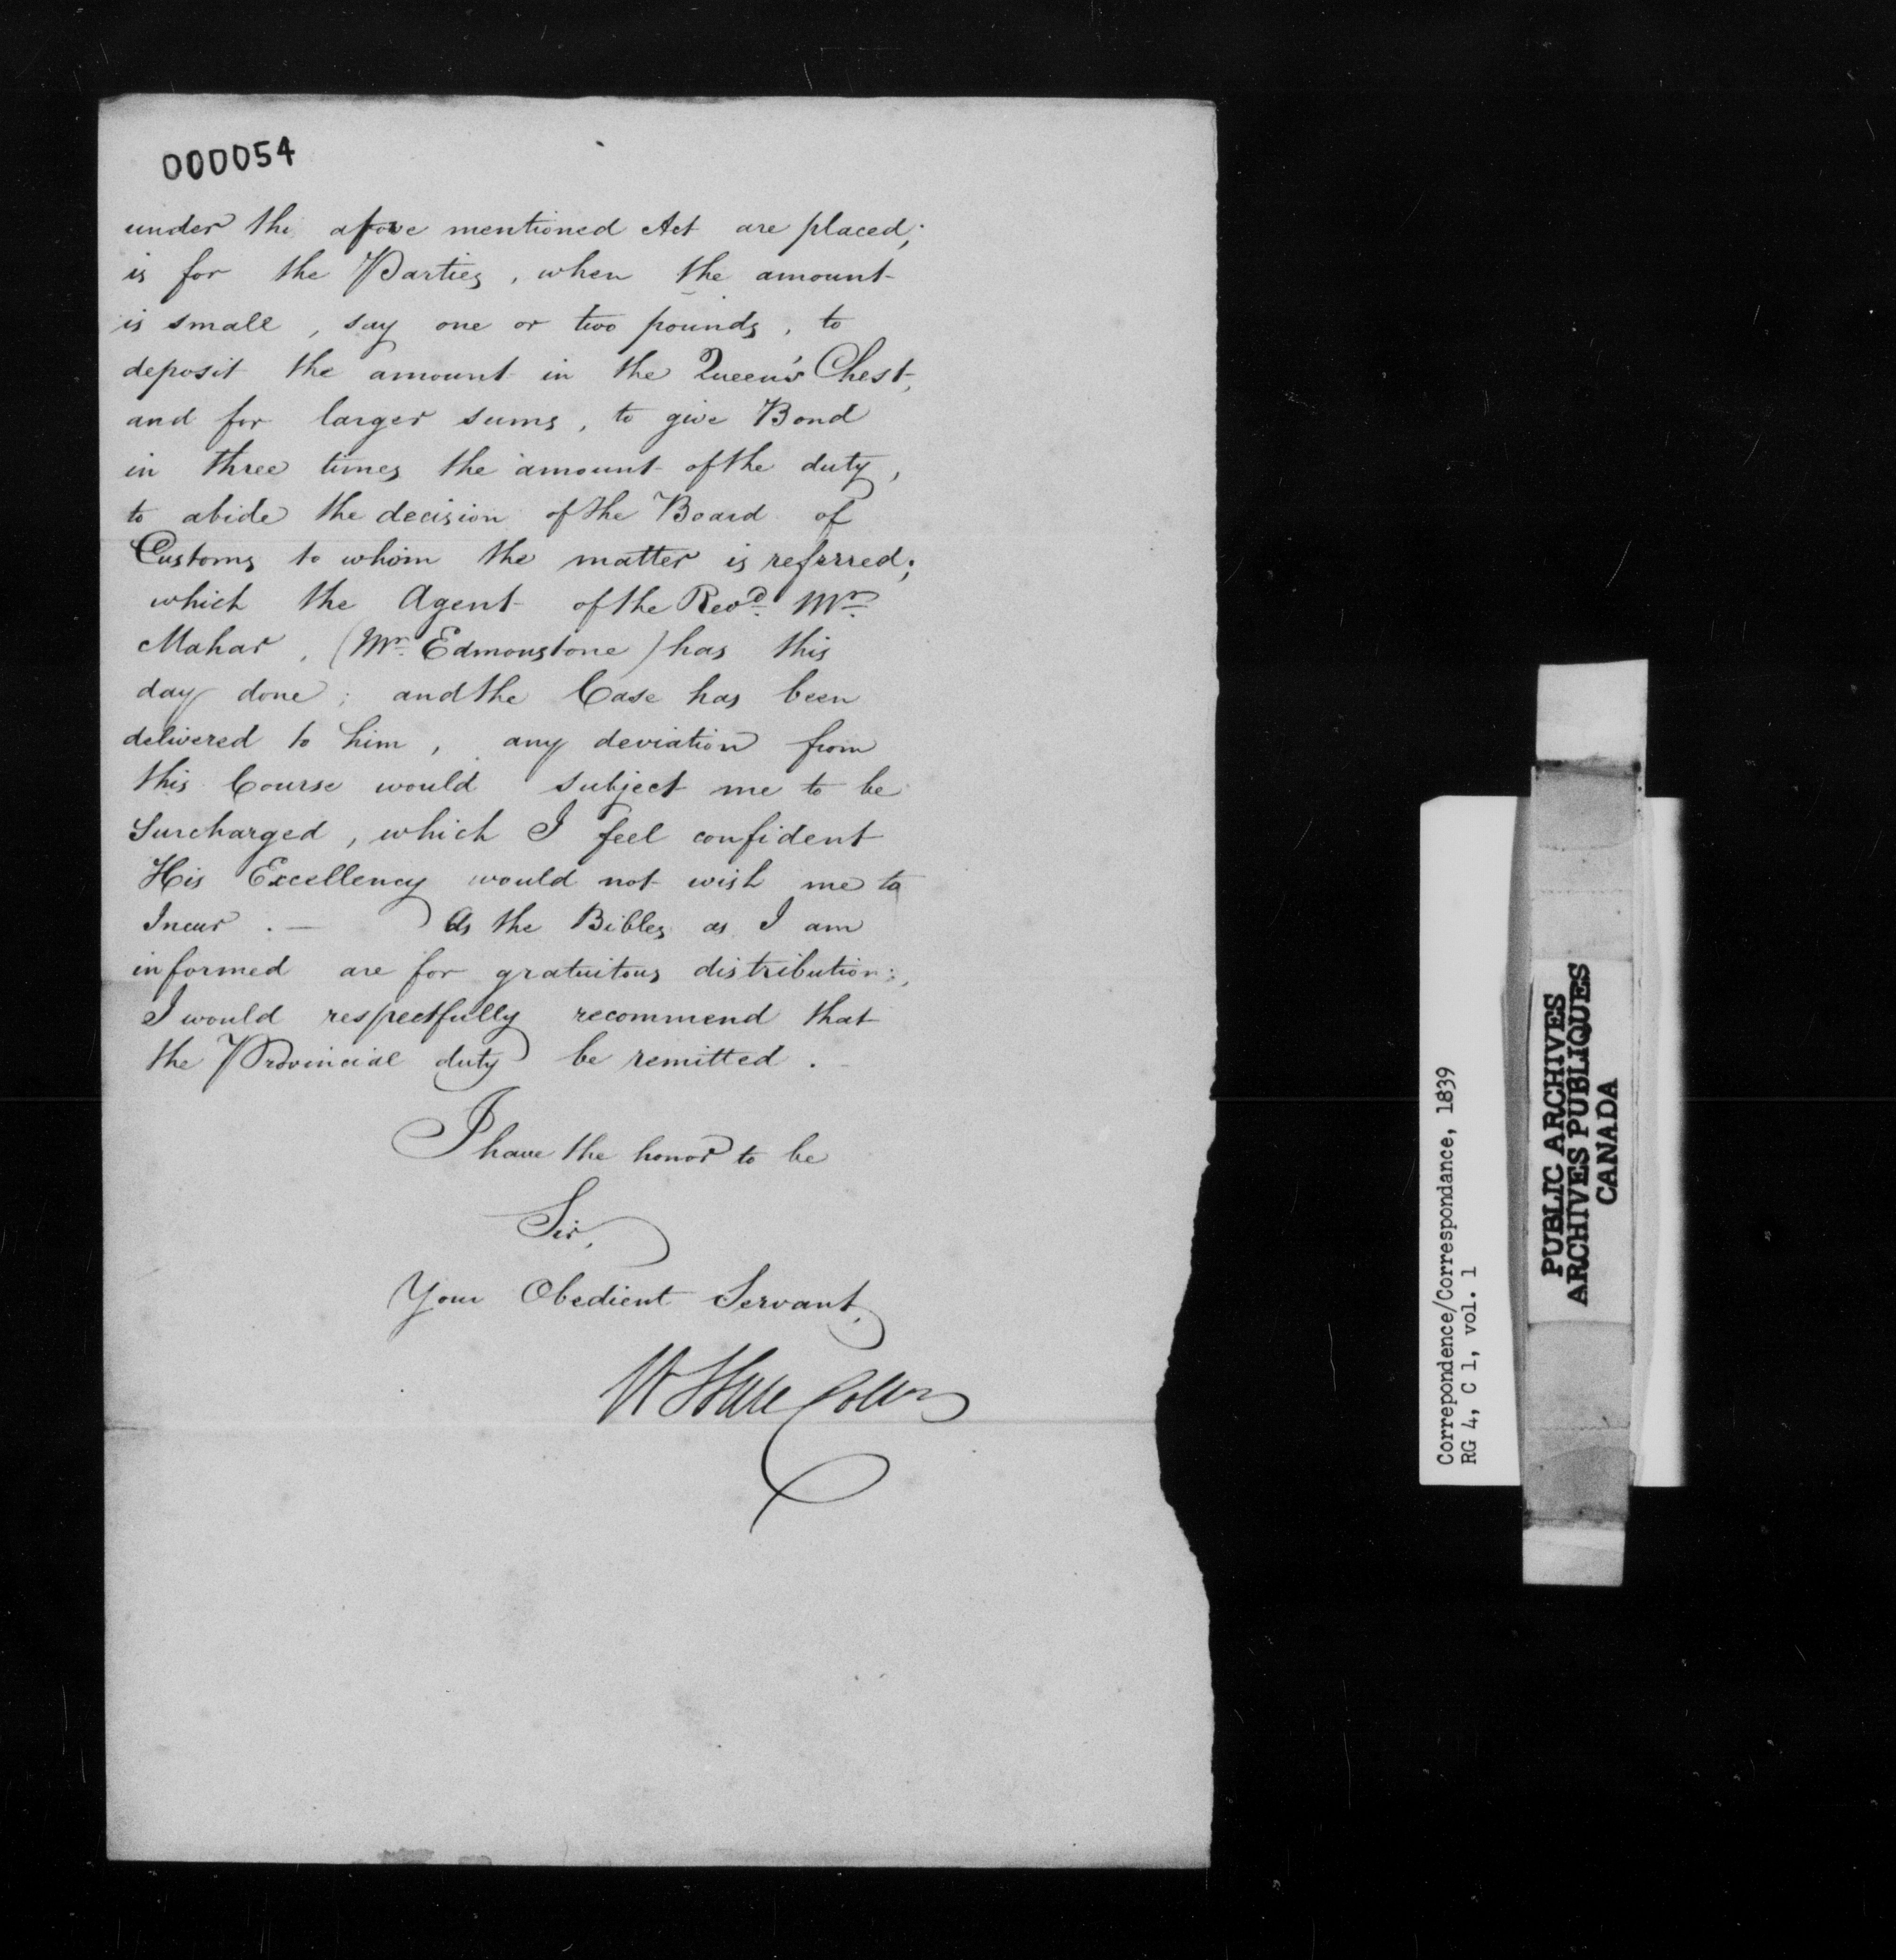 000054
under the afove mentioned Act are placed;
is for the Parties, when the amount
is small, say one or two pounds, to
deposit the amount in the Queen's Chest,
and for larger sums, to give Bond
in three times the amount of the duty,
to abide the decision of the Board of
Customs to whom the matter is referred;
which the Agent of the Revd. Mr.
Mahar, (Mr. Edmonstone) has this
day done; and the Case has been
delivered to him, any deviation from
this Course would subject me to be
Surcharged, which I feel confident
His Excellency would not wish me to
Incur. — As the Bibles as I am
informed are for gratuitous distribution;,
I would respectfully recommend that
the Provincial duty be remitted.
I have the honor to be
Sir,
Your Obedient Servant,
W Hall Collr
Correpondence/Correspondance, 1839
RG 4, C 1, vol. 1
PUBLIC ARCHIVES
ARCHIVES PUBLIQUES
CANADA